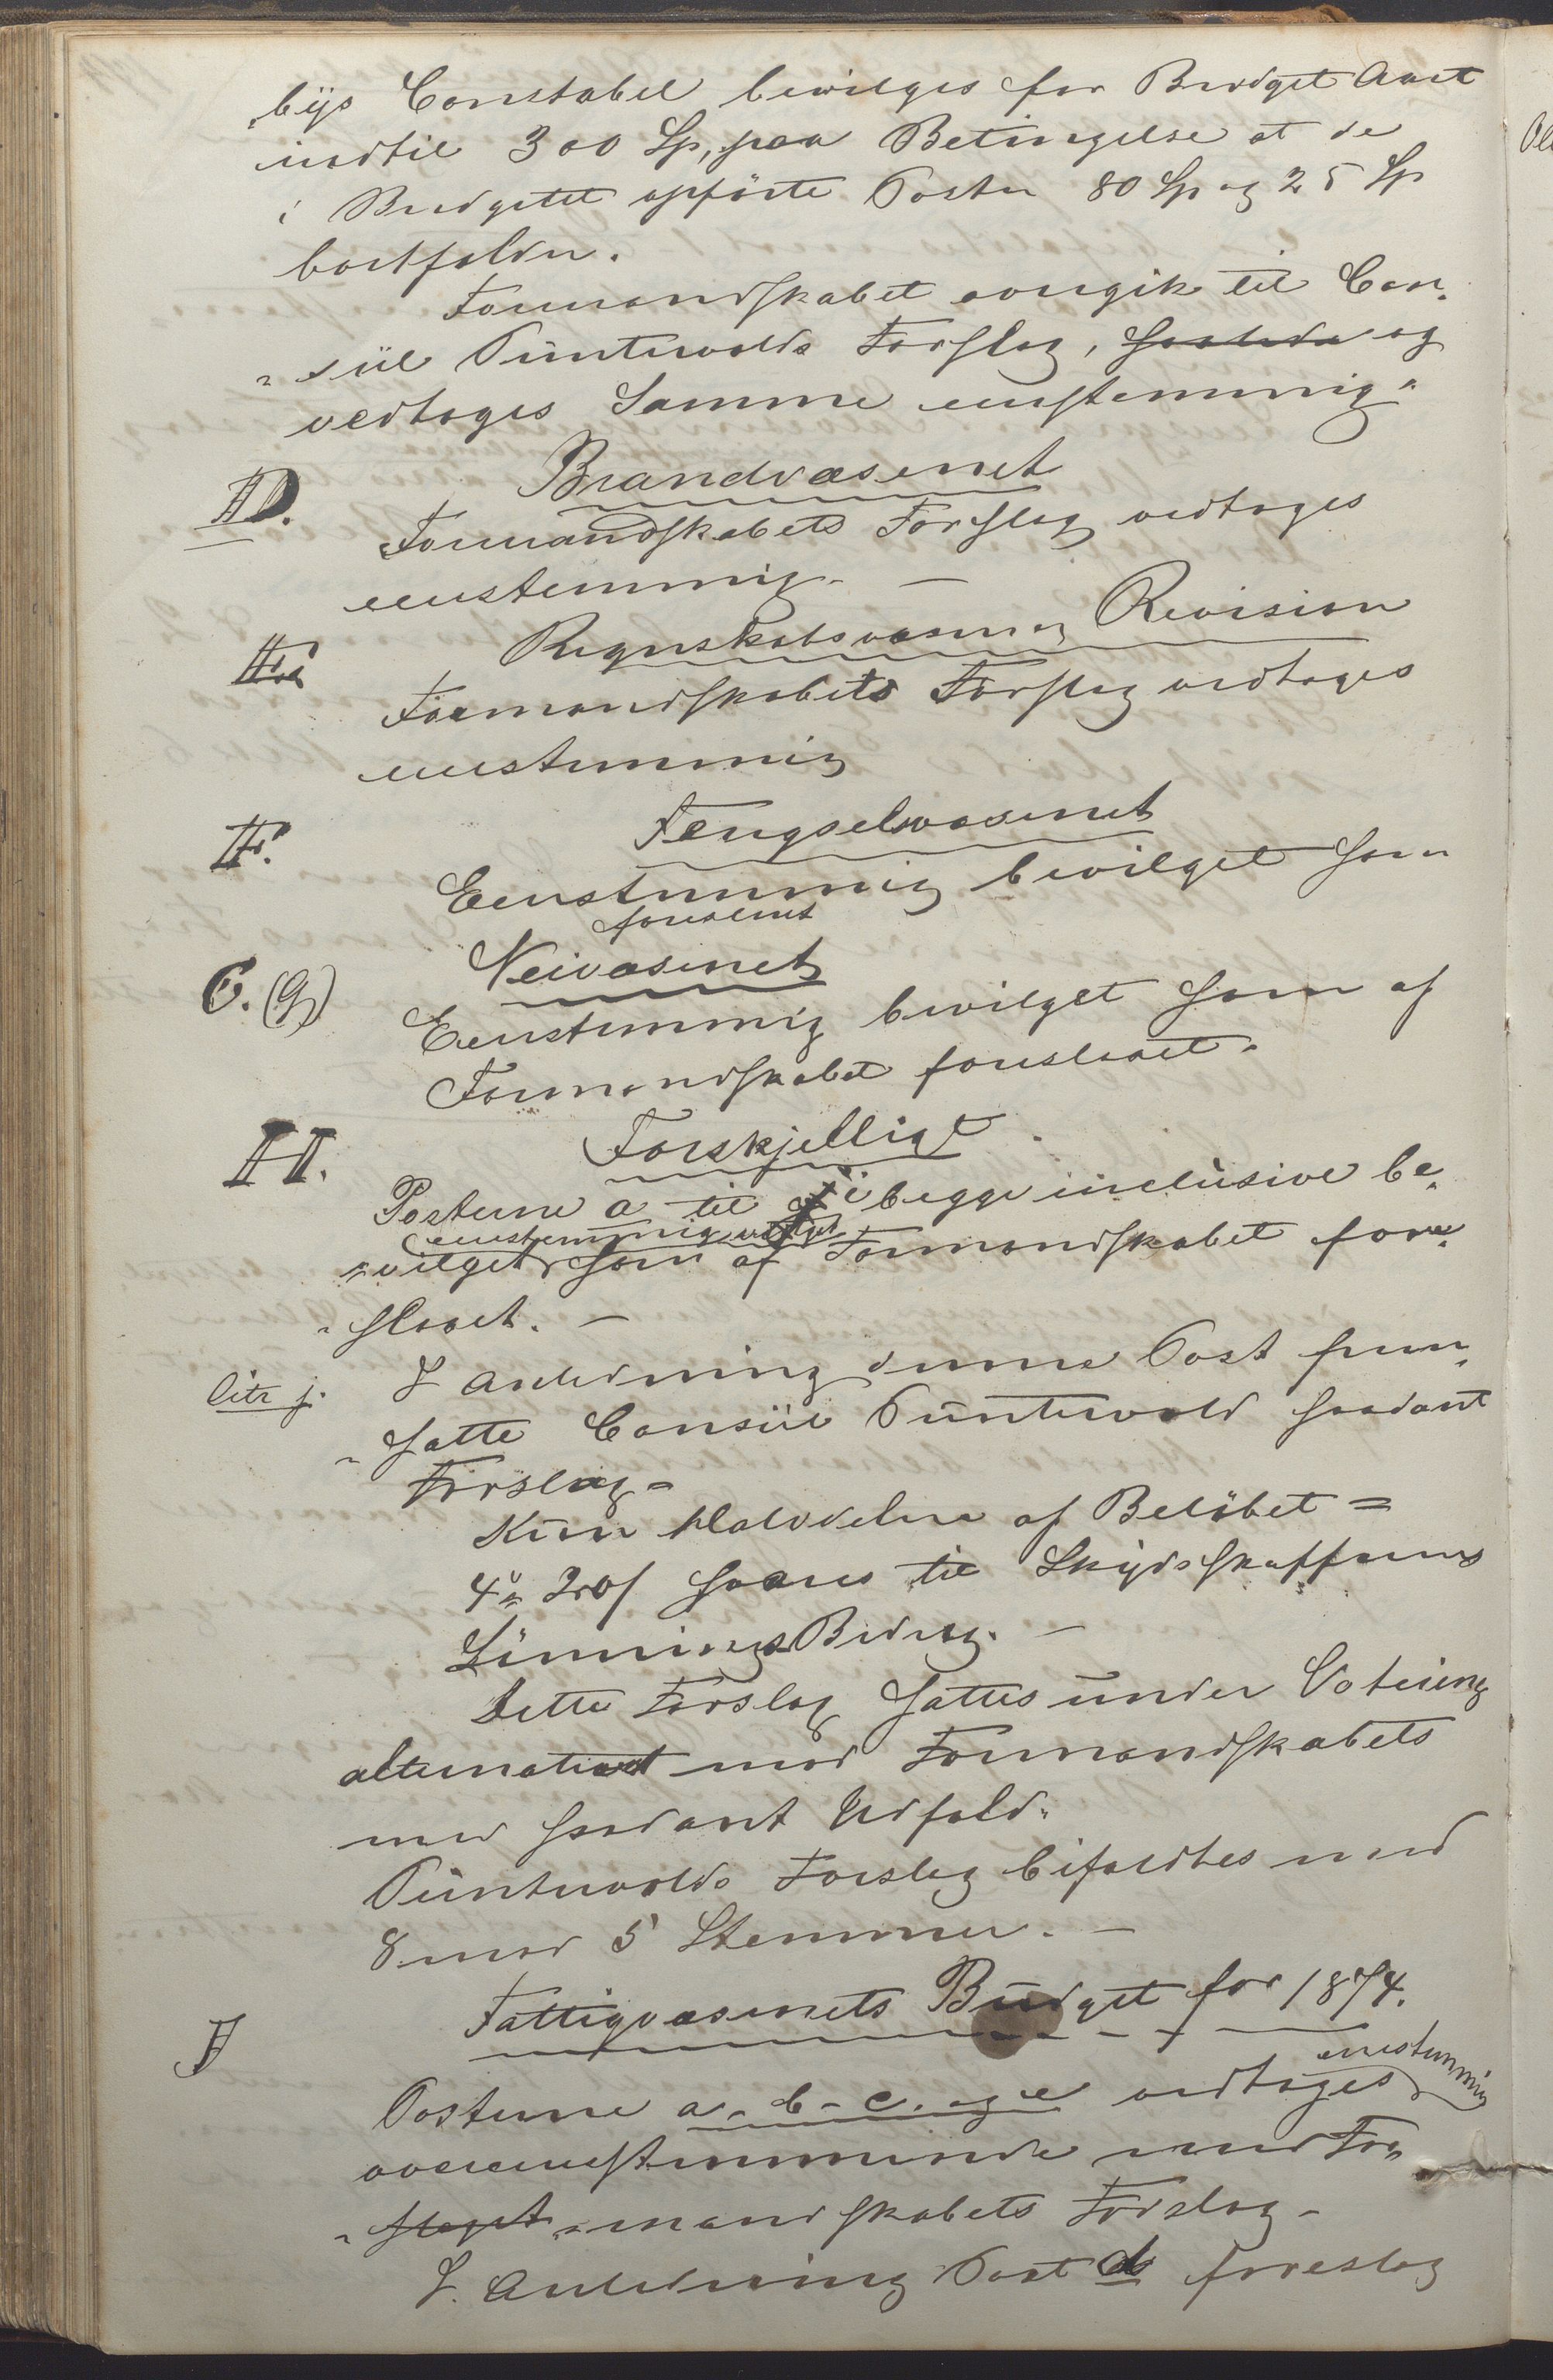 „bys Constabel bevilges for Budget Aaret
indtil 300 Sp, paa Betingelse at de
i Budgettet opförte Poster 80 Sp og 25 Sp
bortfalder.
Formandskabet overgik til Con„
„sül Püntervolds Forslag, saaledes og
vedtoges Samme eenstemmig„
D.
Brandvæsenet
Formandskabets Forslag vedtoges
eenstemmig. —
E.
Regnskabsvæsen og Revision
Formandskabets Forslag vedtoges
eenstemmig
F.
Fengselsvæsenet
Eenstemmig bevilget som
foreslaaet
G. (G)
Veivæsenet
Eenstemmig bevilget som af
Formandskabet foreslaaet.
H.
Forskjelligt.
Posterne a til i begge inclüsive be„
eenstemmig vedtaget
„vilget som af Formandskabet fore„
„slaaet. —
litr j.
I Anledning denne Post frem„
„satte Consül Püntervold saadant
Forslag„
Kün Halvdelen af Beløbet =
4„ 20/ svares til Skydsskafferens
Lönnings Bidrag. —
Dette Forslag sattes ünder Votering
alternativt mod Formandskabets
med saadant Udfald„
Püntervolds Forslag bifaldtes med
8 mod 5 Stemmer. —
I
Fattigvæsenets Büdget for 1874.
Posterne a - b - c. og e vedtoges eenstemmig
overeenstemmende med For„
„slaget „mandskabets Forslag -
I. Anledning Post d foreslog